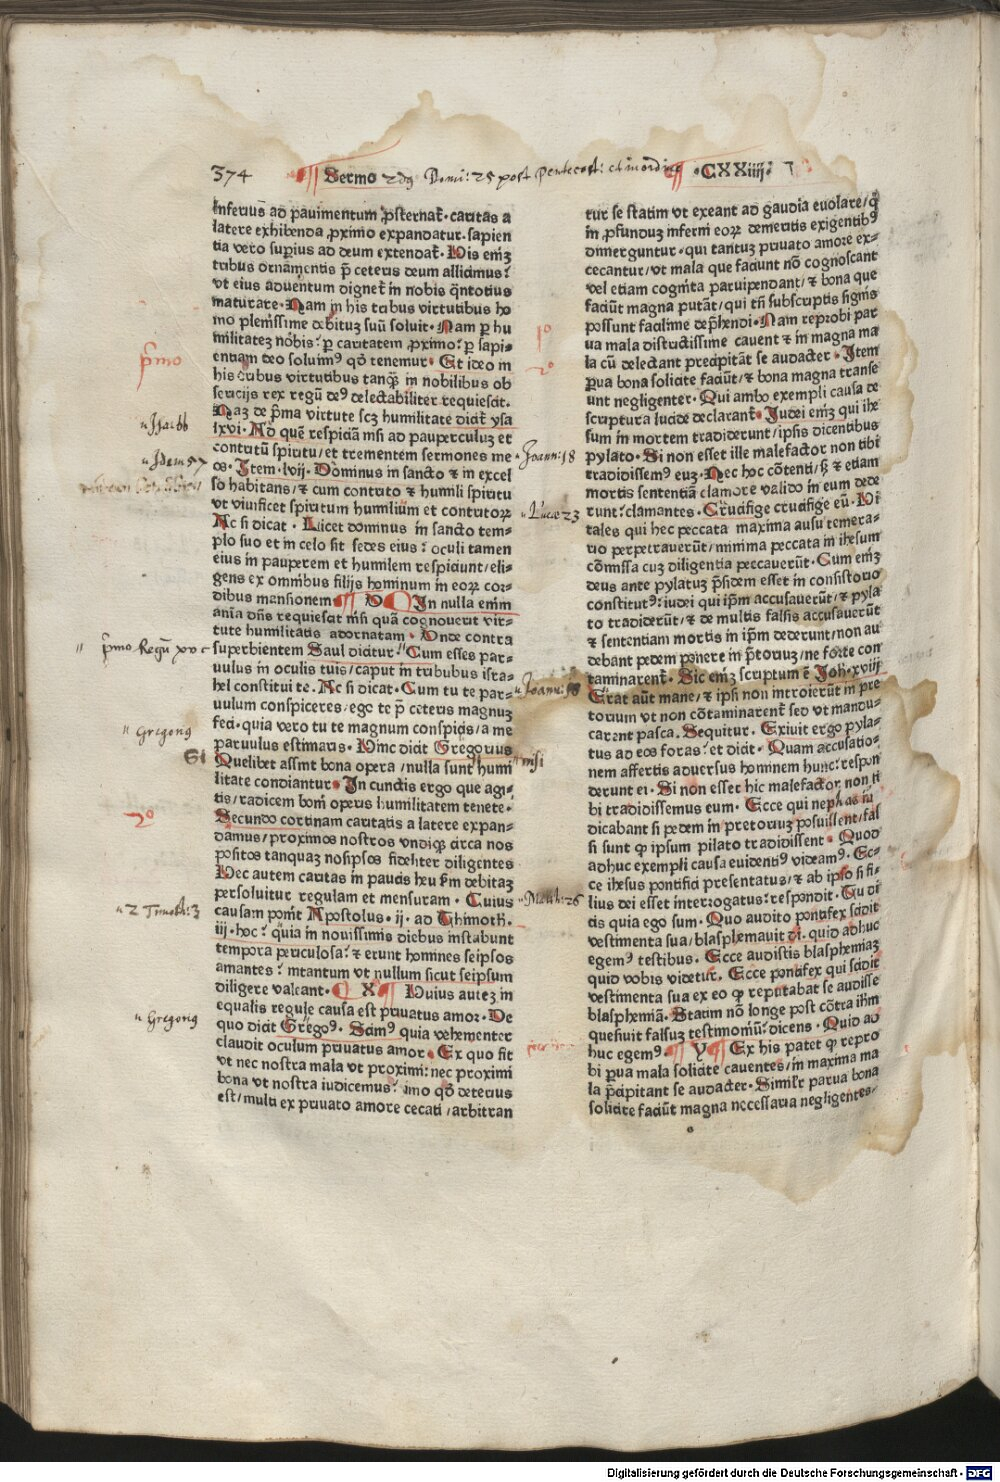 374 Sermo 2dus Domi: 25 post pentecost: et in ordine ·CXXiiij·
inferius ad pauimentum ꝓsternat᷑· caritas a
latere exhibenda ꝓximo expandatur· sapien
tia vero suꝑius ad deum extendat᷑· His em̄
tribus ornamentis p̄ ceteris deum allicimus:
vt eius aduentum dignet᷑ in nobis q̄ntotius
maturare· Nam in his tribus virtutibus ho
mo plenissime debitū suū soluit· Nam ꝑ hu
militatez nobis: ꝑ caritatem ꝓximo: ꝑ sapi-
entiam deo soluimꝰ qd̄ tenemur· Et ideo in
his tribus virtutibus tanꝙ̄ in nobilibus ob
sequijs rex regū deꝰ delectabiliter requiescit·
Naz de p̄ma virtute scz humilitate dicit᷑ ysa
lxvi· Ad quē respiciā nisi ad pauperculuz et
contritū spiritu/et trementem sermones me
os· Item·lvij· Dominus in sancto et in excel
so habitans/⁊ cum contrito ⁊ humili spiritu
vt viuificet spiritum humilium et contritoꝝ
Ac si dicat· Licet dominus in sancto tem-
plo suo et in celo sit sedes eius: oculi tamen
eius in pauperem et humilem respiciunt/eli-
gens ex omnibus filijs hominum in eoꝝ cor-
dibus mansionem In nulla enim
anīa dn̄s requiescit nisi quā cognouerit vir-
tute humilitatis adornatam· Unde contra
superbientem Saul dicitur· Cum esses par-
uulus in oculis tuis/caput in tribubus isra-
hel constitui te· Ac si dicat· Cum tu te par-
uulum conspiceres/ego te p̄ ceteris magnuz
feci· quia vero tu te magnum conspicis/a me
paruulus estimaris· Hinc dicit Gregorius
Si Quelibet assint bona opera/nulla sunt nisi humi
litate condiantur· In cunctis ergo que agi-
tis/radicem boni operis humilitatem tenete·
Secundo cortinam caritatis a latere expan-
damus/proximos nostros vndiqꝫ circa nos
positos tanquaz nosipsos fideliter diligentes
Hec autem caritas in paucis heu fm debitaz
persoluitur regulam et mensuram· Cuius
causam ponit Apostolus·ij· ad Thimoth·
iij·hoc: quia in nouissimis diebus instabunt
tempora periculosa: ⁊ erunt homines seipsos
amantes: intantum vt nullum sicut seipsum
diligere valeant· X Huius autez in
equalis regule causa est priuatus amor· De
quo dicit Gregoꝰ· Scimꝰ quia vehementer
claudit oculum priuatus amor· Ex quo fit
vt nec nostra mala vt proximi: nec proximi
bona vt nostra iudicemus: imo qd̄ deterius
est/multi ex priuato amore cecati/arbitran
tur se statim vt exeant ad gaudia euolare/q̄
in ꝓfundum inferni eoꝝ demeritis exigentibꝰ
dimerguntur· qui tantuz priuato amore ex-
cecantur/vt mala que faciunt nō cognoscant
vel etiam cognita paruipendant/⁊ bona que
faciūt magna putāt/qui tn̄ subscriptis signis
possunt facilime dep̄hendi· Nam reprobi par
ua mala districtissime cauent ⁊ in magna ma
la cū delectant᷑ precipitāt se audacter· Item
ꝑua bona solicite faciūt/⁊ bona magna transe
unt negligenter· Qui ambo exempli causa de
scriptura lucide declarant᷑· Iudei em̄ qui ihe
sum in mortem tradiderunt/ipsis dicentibus
pylato· Si non esset ille malefactor non tibi
tradidissemꝰ euz· Nec hoc cōtenti/sꝫ ⁊ etiam
mortis sententiā clamore valido in eum dede
runt: clamantes· Crucifige crucifige eū· Hi
tales qui hec peccata maxima ausu temera-
rio perpetrauerūt/minima peccata in ihesum
cōmissa cuz diligentia peccauerūt· Cum em̄
deus ante pylatuz p̄sidem esset in consistorio
constitutꝰ: iudei qui ip̄m accusauerūt/⁊ pyla
to tradiderūt/⁊ de multis falsis accusauerūt
⁊ sententiam mortis in ip̄m dederunt/non au
debant pedem ponere in p̄toriuz/ne forte con
taminarent᷑· Sic em̄ scriptum ē Joh·xviij
Erat aūt mane/⁊ ipsi non introierūt in pre
torium vt non cōtaminarent᷑ sed vt mandu-
carent pasca· Sequitur· Exiuit ergo pyla-
tus ad eos foras: et dicit· Quam accusatio-
nem affertis aduersus hominem hunc: respon
derunt ei· Si non esset hic malefactor non ti
bi tradidissemus eum· Ecce qui nephas iu
dicabant si pedem in pretoriuz posuissent/fal
si sunt ꝙ ipsum pilato tradidissent· Quod
adhuc exempli causa euidentiꝰ videamꝰ· Ec-
ce ihesus pontifici presentatus/⁊ ab ipso si fi-
lius dei esset interrogatus: respondit· Tu di
cis quia ego sum· Quo audito pontifex scidit
vestimenta sua/blasphemauit di· quid adhuc
egemꝰ testibus· Ecce audistis blasphemiaz
quid vobis videtur· Ecce pontifex qui scidit
vestimenta sua ex eo ꝙ reputabat se audisse
blasphemiā· Statim nō longe post cōtra ihm̄
quesiuit falsuz testimoniū: dicens· Quid ad
huc egemꝰ· Y Ex his patet ꝙ repro
bi ꝑua mala solicite cauentes/in maxima ma
la p̄cipitant se audacter· Similr̄ parua bona
solicite faciūt magna necessaria negligentes·
p̄mo
" Isai 66
" Idem 57
" p̄mo Regū xv c
" Gregorius
2o
" 2 Timoth: 3
" Gregorius
1o
2o
" Joann: 18
" Lucæ 23
" Joann: 18
" Matth: 26
Digitalisierung gefördert durch die Deutsche Forschungsgemeinschaft - DFG